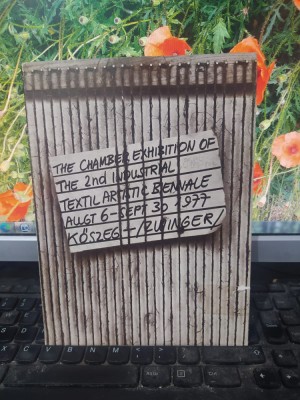 THE CHAMBER EXHIBITION OF
THE 2nd INDUSTRIAL
TEXTIL ARTISTIC BIENNALE
AUGT 6-SEPT 30 1977
KÖSZEG--/ZWINGER/